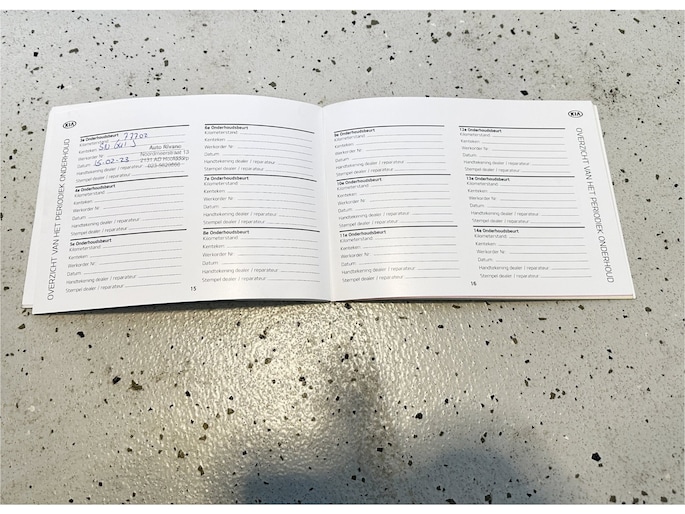 KIA
OVERZICHT VAN HET PERIODIEK ONDERHOUD
Kilometerstand: 77702
Kenteken:
Werkorder Nr:
Datum: 15-02-23
Handtekening dealer / reparateur
Stempel dealer / reparateur
Auto Nivano
Noordzeestraat 13
4e Onderhoudsbeurt
Kilometerstand:
Kenteken:
Werkorder Nr:
Datum:
Handtekening dealer / reparateur
Stempel dealer / reparateur
5e Onderhoudsbeurt
Kilometerstand:
Kenteken:
Werkorder Nr:
Datum:
Handtekening dealer / reparateur
Stempel dealer / reparateur
6e Onderhoudsbeurt
Kilometerstand:
Kenteken:
Werkorder Nr:
Datum:
Handtekening dealer / reparateur
Stempel dealer / reparateur
7e Onderhoudsbeurt
Kilometerstand:
Kenteken:
Werkorder Nr:
Datum:
Handtekening dealer / reparateur
Stempel dealer / reparateur
8e Onderhoudsbeurt
Kilometerstand:
Kenteken:
Werkorder Nr:
Datum:
Handtekening dealer / reparateur
Stempel dealer / reparateur
15
9e Onderhoudsbeurt
Kilometerstand:
Kenteken:
Werkorder Nr:
Datum:
Handtekening dealer / reparateur
Stempel dealer / reparateur
10e Onderhoudsbeurt
Kilometerstand:
Kenteken:
Werkorder Nr:
Datum:
Handtekening dealer / reparateur
Stempel dealer / reparateur
11e Onderhoudsbeurt
Kilometerstand:
Kenteken:
Werkorder Nr:
Datum:
Handtekening dealer / reparateur
Stempel dealer / reparateur
12e Onderhoudsbeurt
Kilometerstand:
Kenteken:
Werkorder Nr:
Datum:
Handtekening dealer / reparateur
Stempel dealer / reparateur
13e Onderhoudsbeurt
Kilometerstand:
Kenteken:
Werkorder Nr:
Datum:
Handtekening dealer / reparateur
Stempel dealer / reparateur
14e Onderhoudsbeurt
Kilometerstand:
Kenteken:
Werkorder Nr:
Datum:
Handtekening dealer / reparateur
Stempel dealer / reparateur
16
KIA
OVERZICHT VAN HET PERIODIEK ONDERHOUD